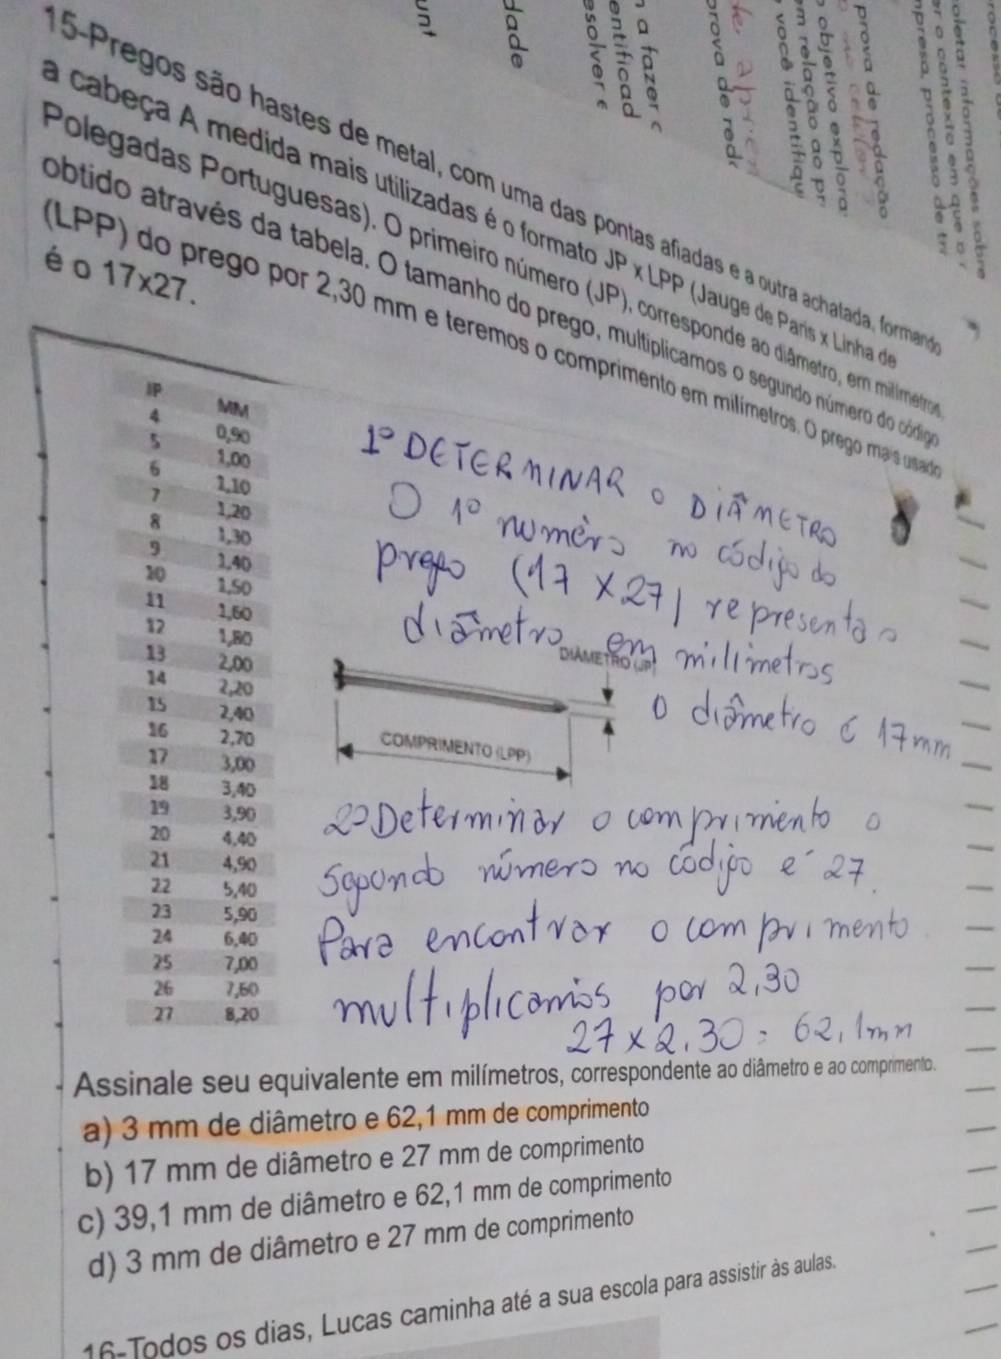 unt
dade
esolver e
entificad
a fazer c
prova de red
você identifiqu
em relação ao pr
o objetivo explora
prova de redação
npresa, processo de tr
er o contexto em que o
oletar informações sobre
15-Pregos são hastes de metal, com uma das pontas afiadas e a outra achatada, formando
a cabeça A medida mais utilizadas é o formato JP x LPP (Jauge de Paris x Linha de
Polegadas Portuguesas). O primeiro número (JP), corresponde ao diâmetro, em milímetros,
obtido através da tabela. O tamanho do prego, multiplicamos o segundo número do código
(LPP) do prego por 2,30 mm e teremos o comprimento em milímetros. O prego mais usado
é o 17x27.
JP MM
4 0,90
5 1,00
6 1,10
7 1,20
8 1,30
9 1,40
10 1,50
11 1,60
12 1,80
13 2,00
14 2,20
15 2,40
16 2,70
17 3,00
18 3,40
19 3,90
20 4,40
21 4,90
22 5,40
23 5,90
24 6,40
25 7,00
26 7,60
27 8,20
1º DETERMINAR o DIÂMETRO
O 1º numero no código do
prego (17 x 27) representa o
diâmetro em milimetros
DIÂMETRO (JP)
o diâmetro é 17mm
COMPRIMENTO (LPP)
2º Determinar o comprimento o
segundo número no código é 27.
Para encontrar o comprimento
multiplicamos por 2,30
27 x 2.30 = 62,1mm
Assinale seu equivalente em milímetros, correspondente ao diâmetro e ao comprimento.
a) 3 mm de diâmetro e 62,1 mm de comprimento
b) 17 mm de diâmetro e 27 mm de comprimento
c) 39,1 mm de diâmetro e 62,1 mm de comprimento
d) 3 mm de diâmetro e 27 mm de comprimento
16-Todos os dias, Lucas caminha até a sua escola para assistir às aulas.